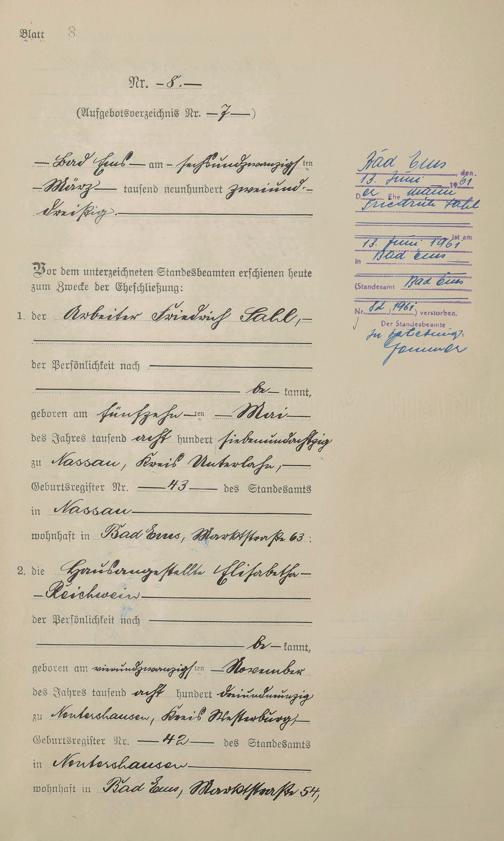 Blatt 8
Nr. — 8. —
(Aufgebotsverzeichnis Nr. — 7 —)
— Bad Ems — am — sechsundzwanzigsten
— März — tausend neunhundert zweiund-
dreißig. —
Vor dem unterzeichneten Standesbeamten erschienen heute
zum Zwecke der Eheschließung:
1. der Arbeiter Friedrich Sahl, —
der Persönlichkeit nach
be kannt,
geboren am fünfzehn ten — Mai
des Jahres tausend acht hundert siebenundachtzig
zu Nassau, Kreis Unterlahn, —
Geburtsregister Nr. — 43 — des Standesamts
in Nassau
wohnhaft in Bad Ems, Marktstraße 63.
2. die Hausangestellte Elisabetha —
— Reichwein
der Persönlichkeit nach
be kannt,
geboren am vierundzwanzigsten — November
des Jahres tausend acht hundert dreiundneunzig
zu Nentershausen, Kreis Westerburg, —
Geburtsregister Nr. — 42 — des Standesamts
in Nentershausen
wohnhaft in Bad Ems, Marktstraße 54,
Bad Ems den
13. Juni 1961
Der Ehemann
Friedrich Sahl
ist am
13. Juni 1961
in Bad Ems
(Standesamt Bad Ems
Nr. 82/1961) verstorben.
Der Standesbeamte
In Vertretung: